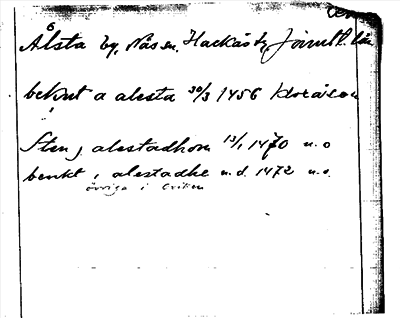 Ålsta by, Näs sn. Hackås tg, Jämtl. län
beknt a alesta 30/3 1456
Sten j alestadhom 13/1 1470 n.o
benkt i alestadhe u.d. 1472 n.o.
övriga i